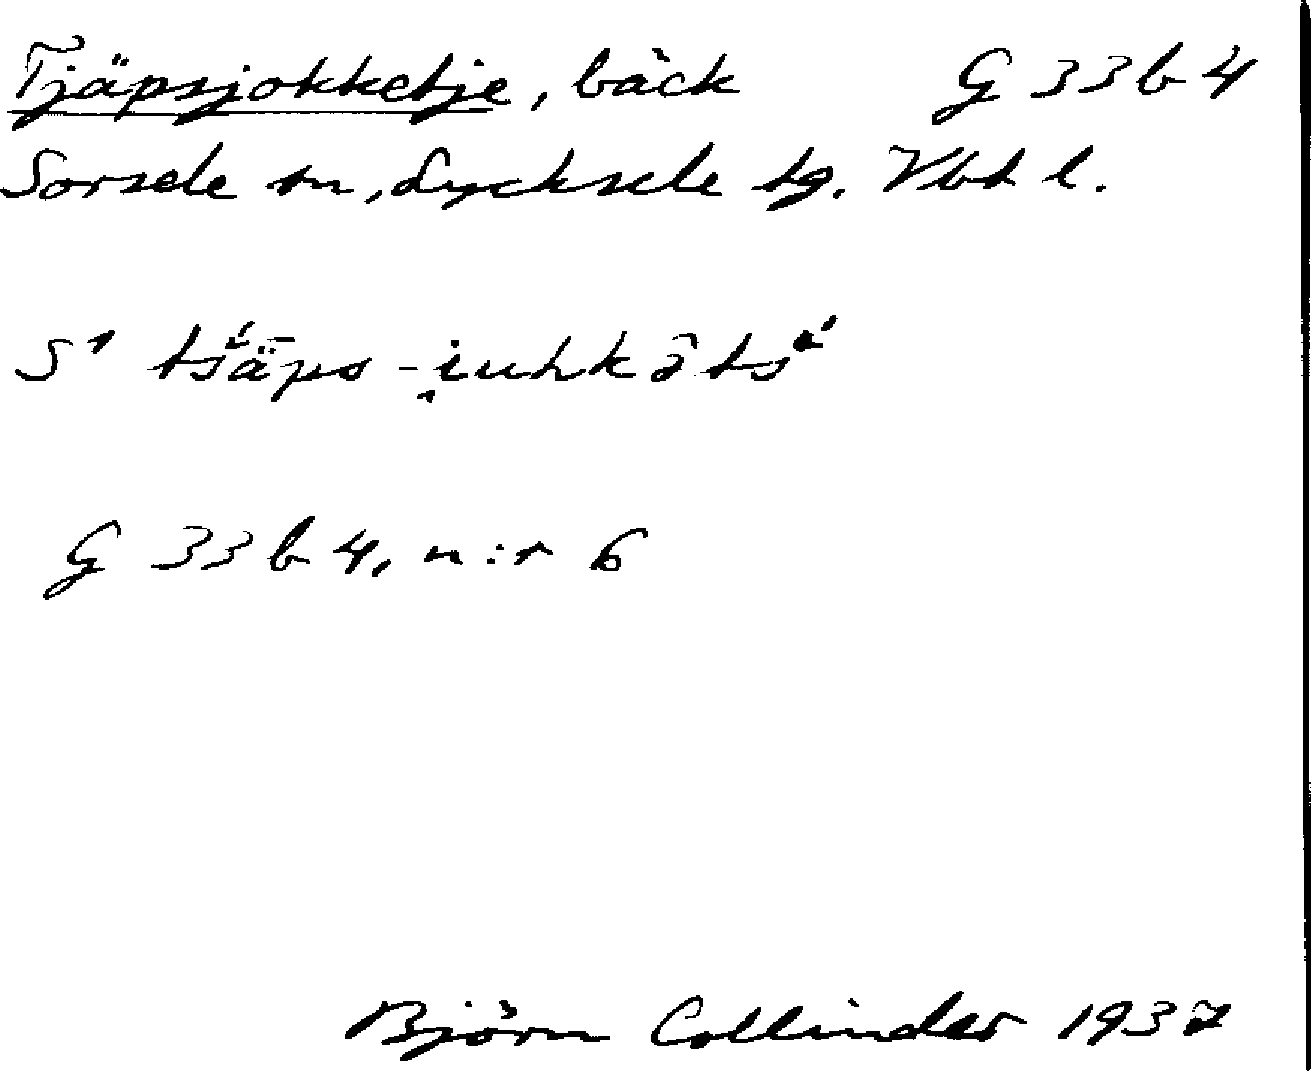 Tjäpsjokketje, bäck G 33 b 4
Sorsele sn, Lycksele tg. Vbt l.
S¹ tsʼäps-i̯uhkəts
G 33 b 4, n:r 6
Björn Collinder 1937